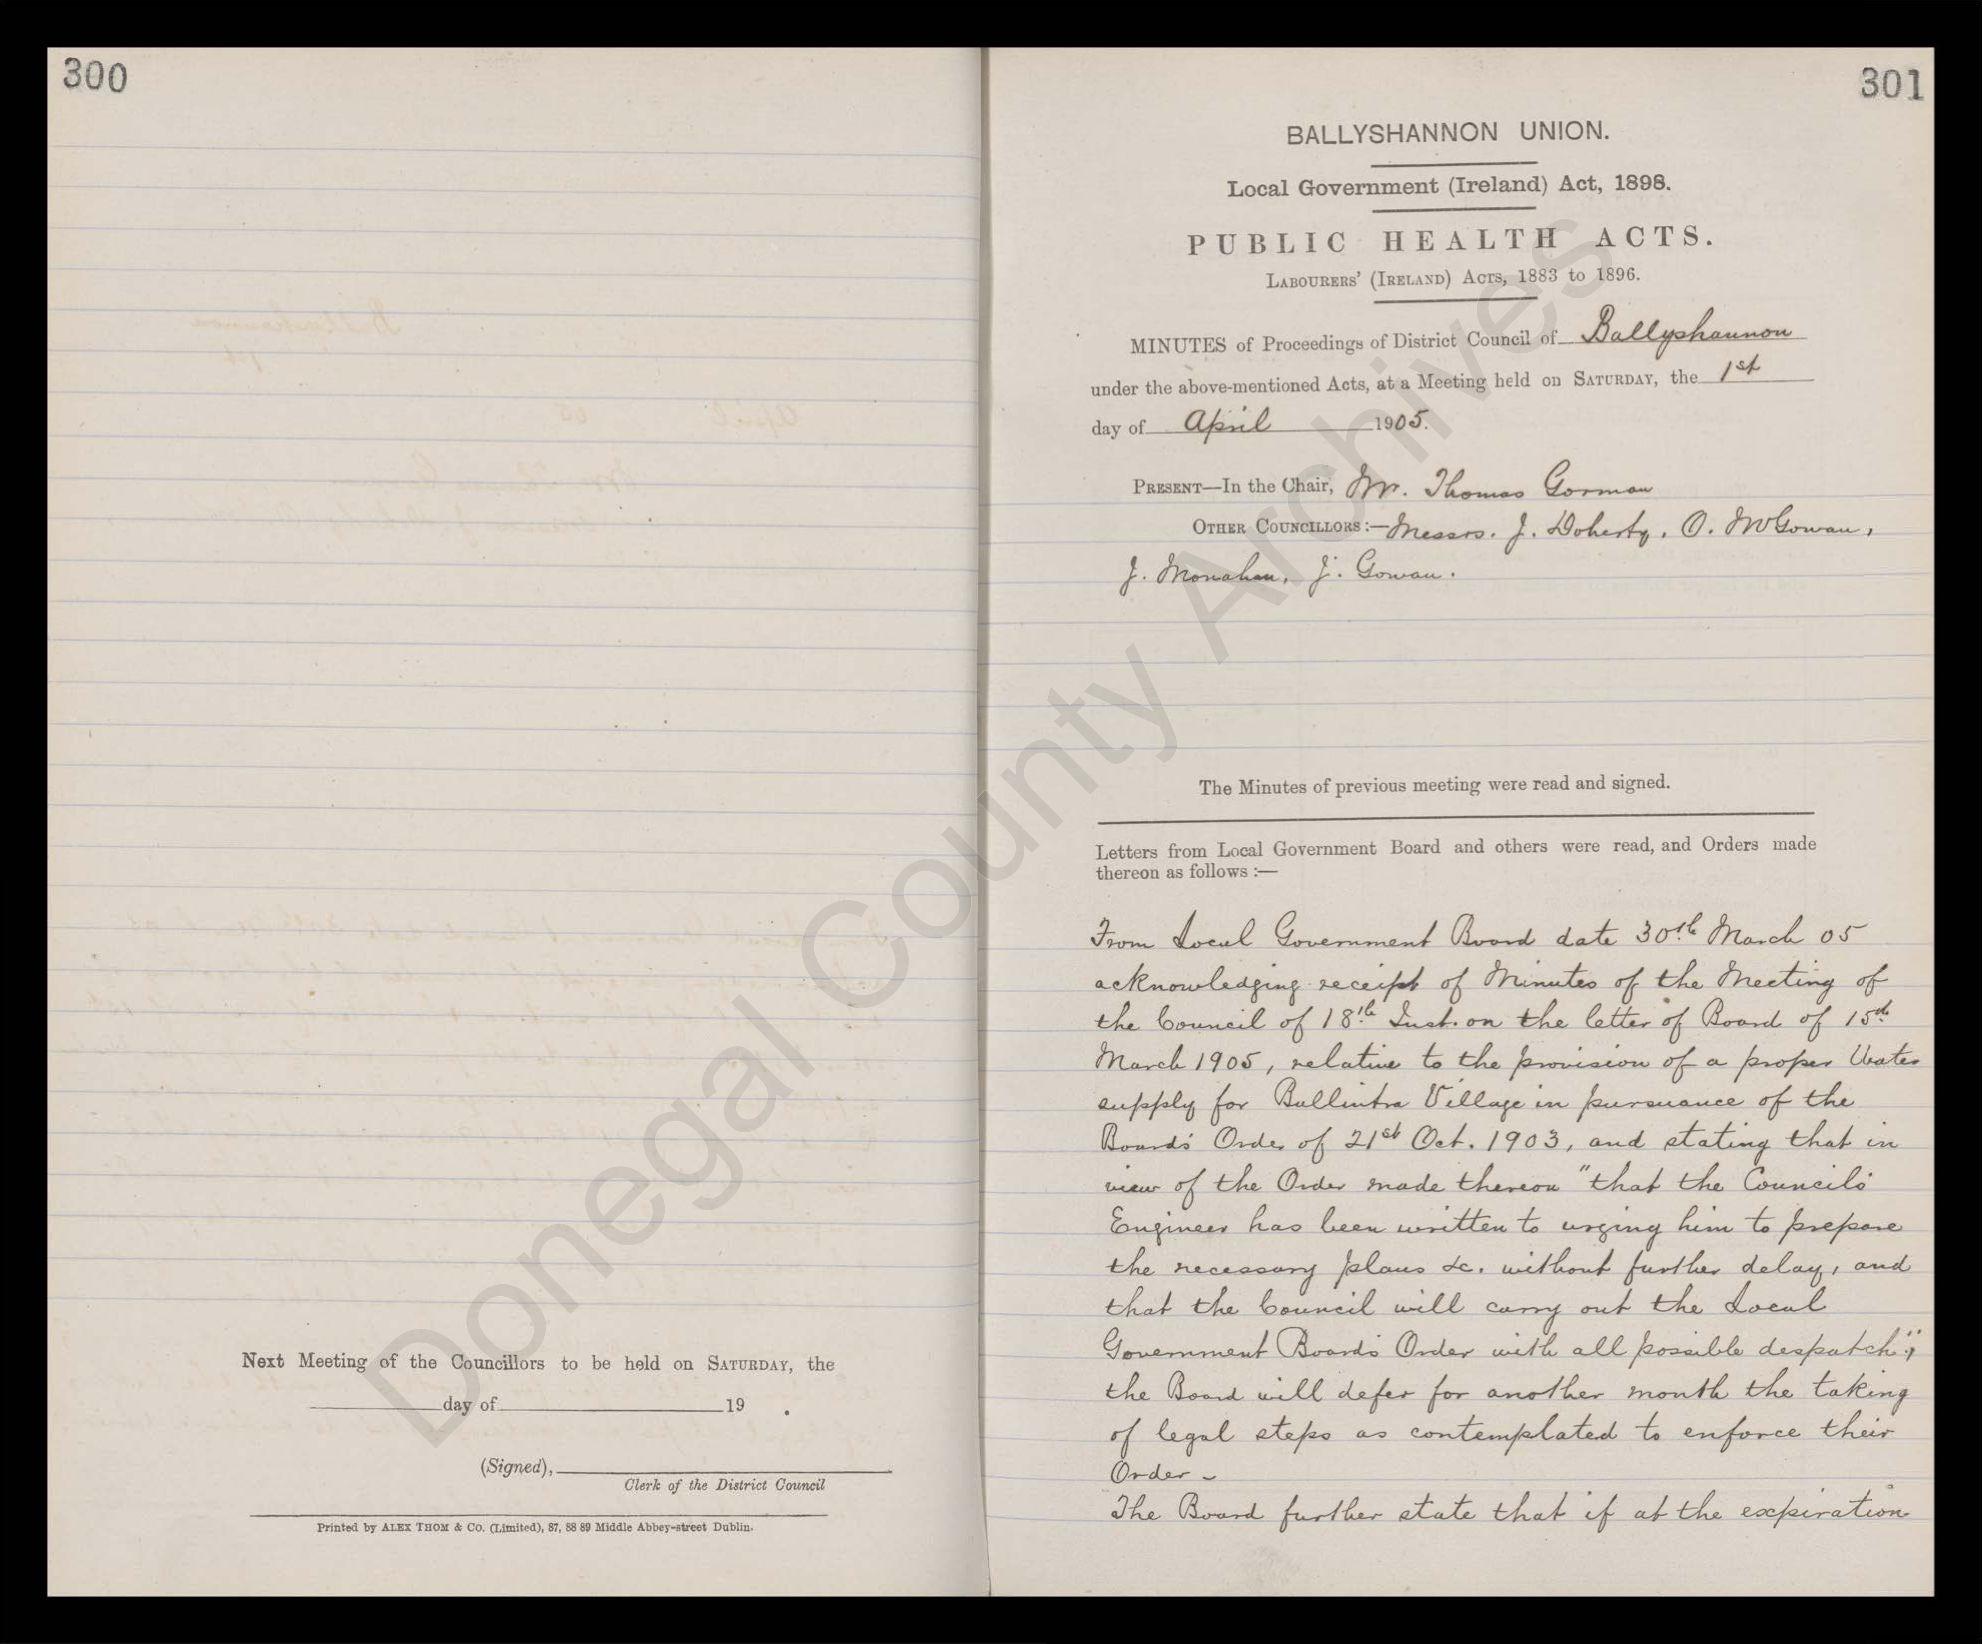 300
Next Meeting of the Councillors to be held on SATURDAY, the
day of 19 .
(Signed),
Clerk of the District Council
Printed by ALEX THOM & CO. (Limited), 87, 88 89 Middle Abbey-street Dublin.
301
BALLYSHANNON UNION.
Local Government (Ireland) Act, 1898.
PUBLIC HEALTH ACTS.
LABOURERS' (IRELAND) ACTS, 1883 to 1896.
MINUTES of Proceedings of District Council of Ballyshannon
under the above-mentioned Acts, at a Meeting held on SATURDAY, the 1st
day of April 1905.
PRESENT—In the Chair, Mr. Thomas Gorman
OTHER COUNCILLORS :— Messrs. J. Doherty, O. McGowan,
J. Monahan, J. Gowan.
The Minutes of previous meeting were read and signed.
Letters from Local Government Board and others were read, and Orders made
thereon as follows :—
From Local Government Board date 30th March 05
acknowledging receipt of Minutes of the Meeting of
the Council of 18th Inst. on the letter of Board of 15th
March 1905, relative to the provision of a proper Water
supply for Ballintra Village in pursuance of the
Boards' Order of 21st Oct. 1903, and stating that in
view of the Order made thereon "that the Council's
Engineer has been written to urging him to prepare
the necessary plans &c. without further delay, and
that the Council will carry out the Local
Government Boards Order with all possible despatch";
the Board will defer for another month the taking
of legal steps as contemplated to enforce their
Order -
The Board further state that if at the expiration
Donegal County Archives